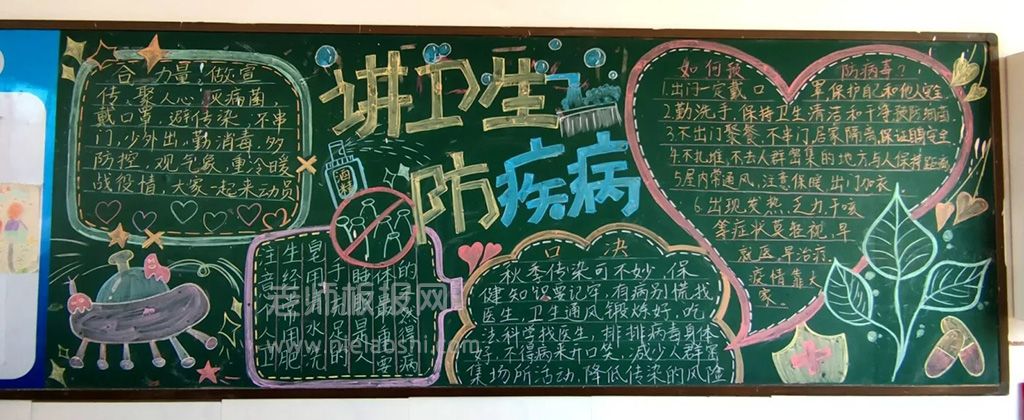 合 力量 做宣
传,聚人心 灭病菌,
戴口罩,避传染,不串
门,少外出,勤消毒,多
防控,观气象,重冷暖
战役情,大家一起来动员
讲卫生
防疾病
酒精
如何 防病毒?
1.出门一定戴口 罩保护自己和他人安全
2.勤洗手,保持卫生清洁和干净预防细菌
3.不出门聚餐,不串门居家隔离,保证 安全
4.不扎堆,不去人群密集的地方,与人保持距离
5屋内常通风,注意保暖 出门加衣
6.出现发热,乏力干咳
等症状莫轻视,早
就医,早治疗.
疫情靠大
家.
口决
秋季传染可不妙 保
健知识要记牢,有病别慌找
医生,卫生通风锻炼好,吃
法科学找医生,排排病毒身体
好,不得病来开口笑,减少人群密
集场所活动,降低传染的风险
老师板报网
www.pielaoshi.com